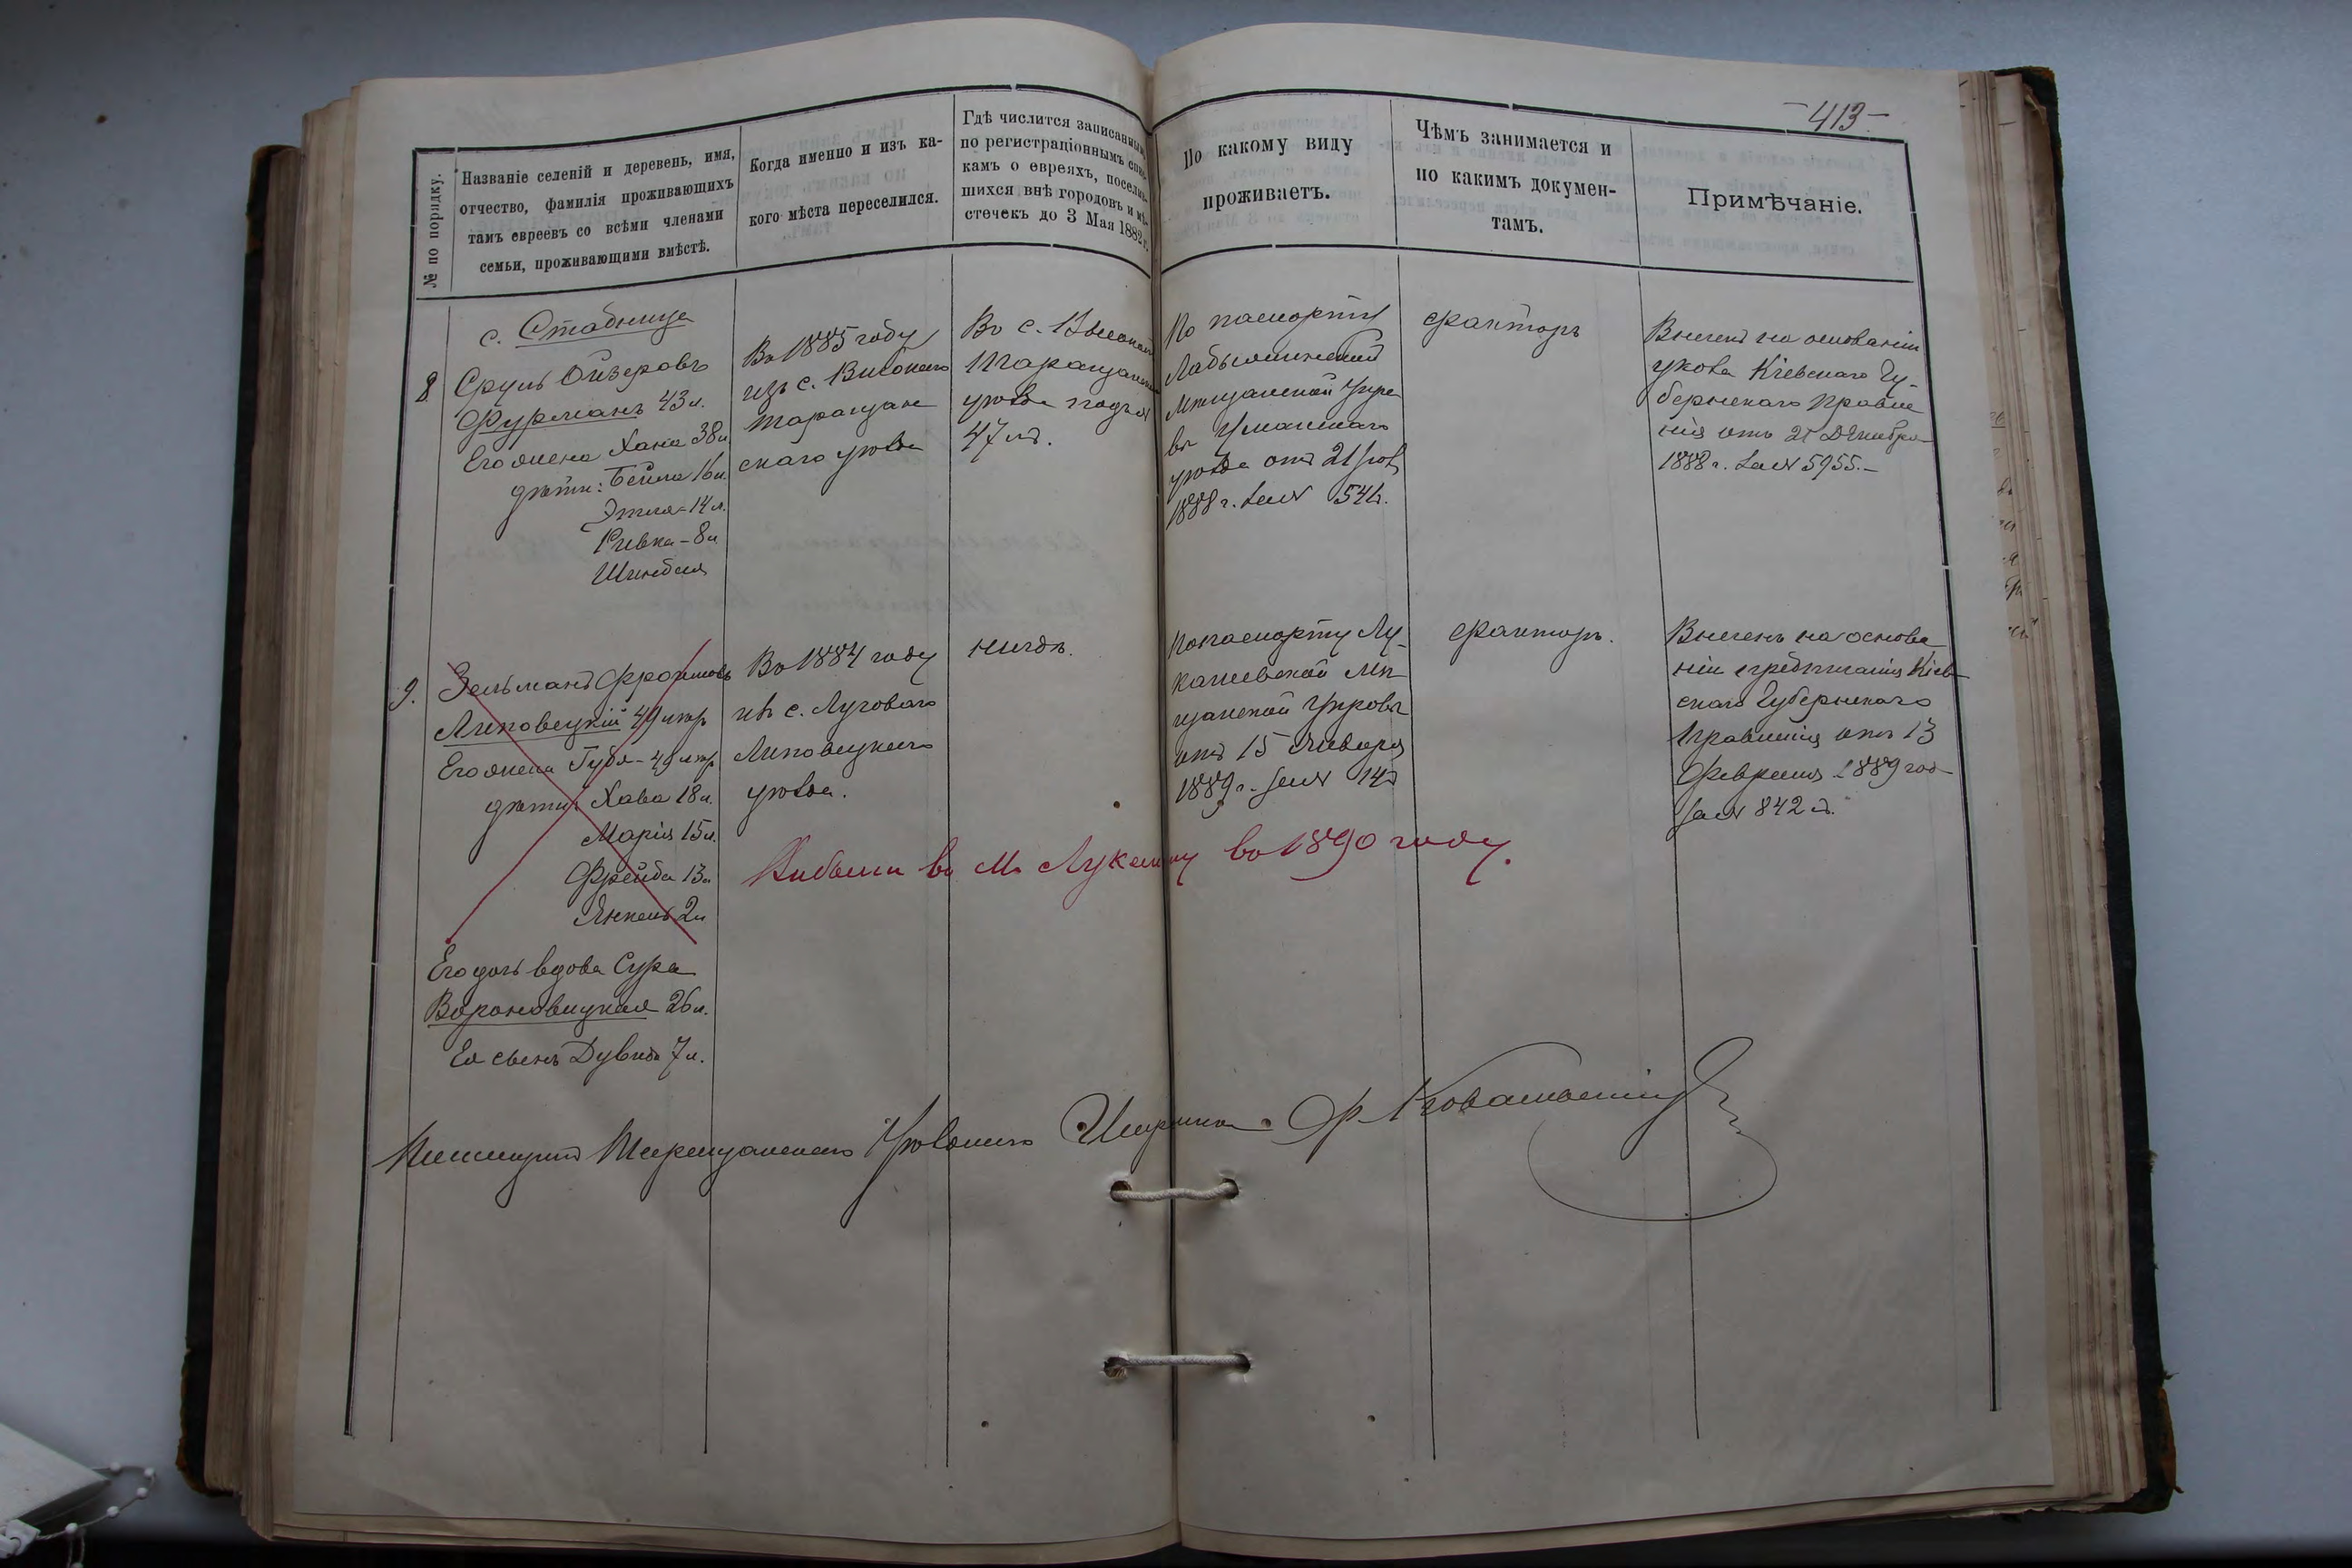 -413-
№ по порядку.
Названіе селеній и деревень, имя,
отчество, фамилія проживающихъ
тамъ евреевъ со всѣми членами
семьи, проживающими вмѣстѣ.
Когда именно и изъ ка-
кого мѣста переселился.
Гдѣ числится записаннымъ
по регистраціоннымъ спис-
камъ о евреяхъ, поселив-
шихся внѣ городовъ и мѣ-
стечекъ до 3 Мая 1882 г.
По какому виду
проживаетъ.
Чѣмъ занимается и
по какимъ докумен-
тамъ.
Примѣчаніе.
с. Стадница
8
Сруль Ойзеровъ
Фурманъ 43 л.
Его жена Хана 38 л.
дѣти: Бейла 16 л.
Этля - 14 л.
Ривка - 8 л.
Въ 1885 году
изъ с. Високаго
Таращан
скаго уѣзда
Во с.
Таращанскаго
уѣзда подъ №
47 мъ.
По паспорту
Мѣщанской Упра
вы Уманскаго
уѣзда отъ 21
1888 г. за №
факторъ
Внесенъ на основаніи
указа Кіевскаго Гу-
бернскаго Правле
нія отъ 21 Декабря
1888 г. за № 5955.-
9.
Зельманъ Фроимовъ
Липовецкій 49 лѣтъ
Его жена Гудя - 49 лѣтъ
дѣти: Хава 18 л.
Марія 15 л.
Фрейда 13 л
Янкель 2 л
Его дочь вдова Сура
Вороновицкая 26 л.
Ея сынъ Дувидъ 7 л.
Въ 1884 году
изъ с. Луговаго
Липовецкаго
уѣзда.
нигдѣ.
По паспорту Лу-
кашевской Мѣ
щанской Управы
отъ 15 Января
1889 г. за № 14
факторъ.
Внесенъ на основа
ніи предписанія Кіев-
скаго Губернскаго
Правленія отъ 13
Февраля 1889 год
за № 842 мъ.
Выбыли въ М. Лукашевку въ 1890 году.
Таращанскаго Уѣзднаго